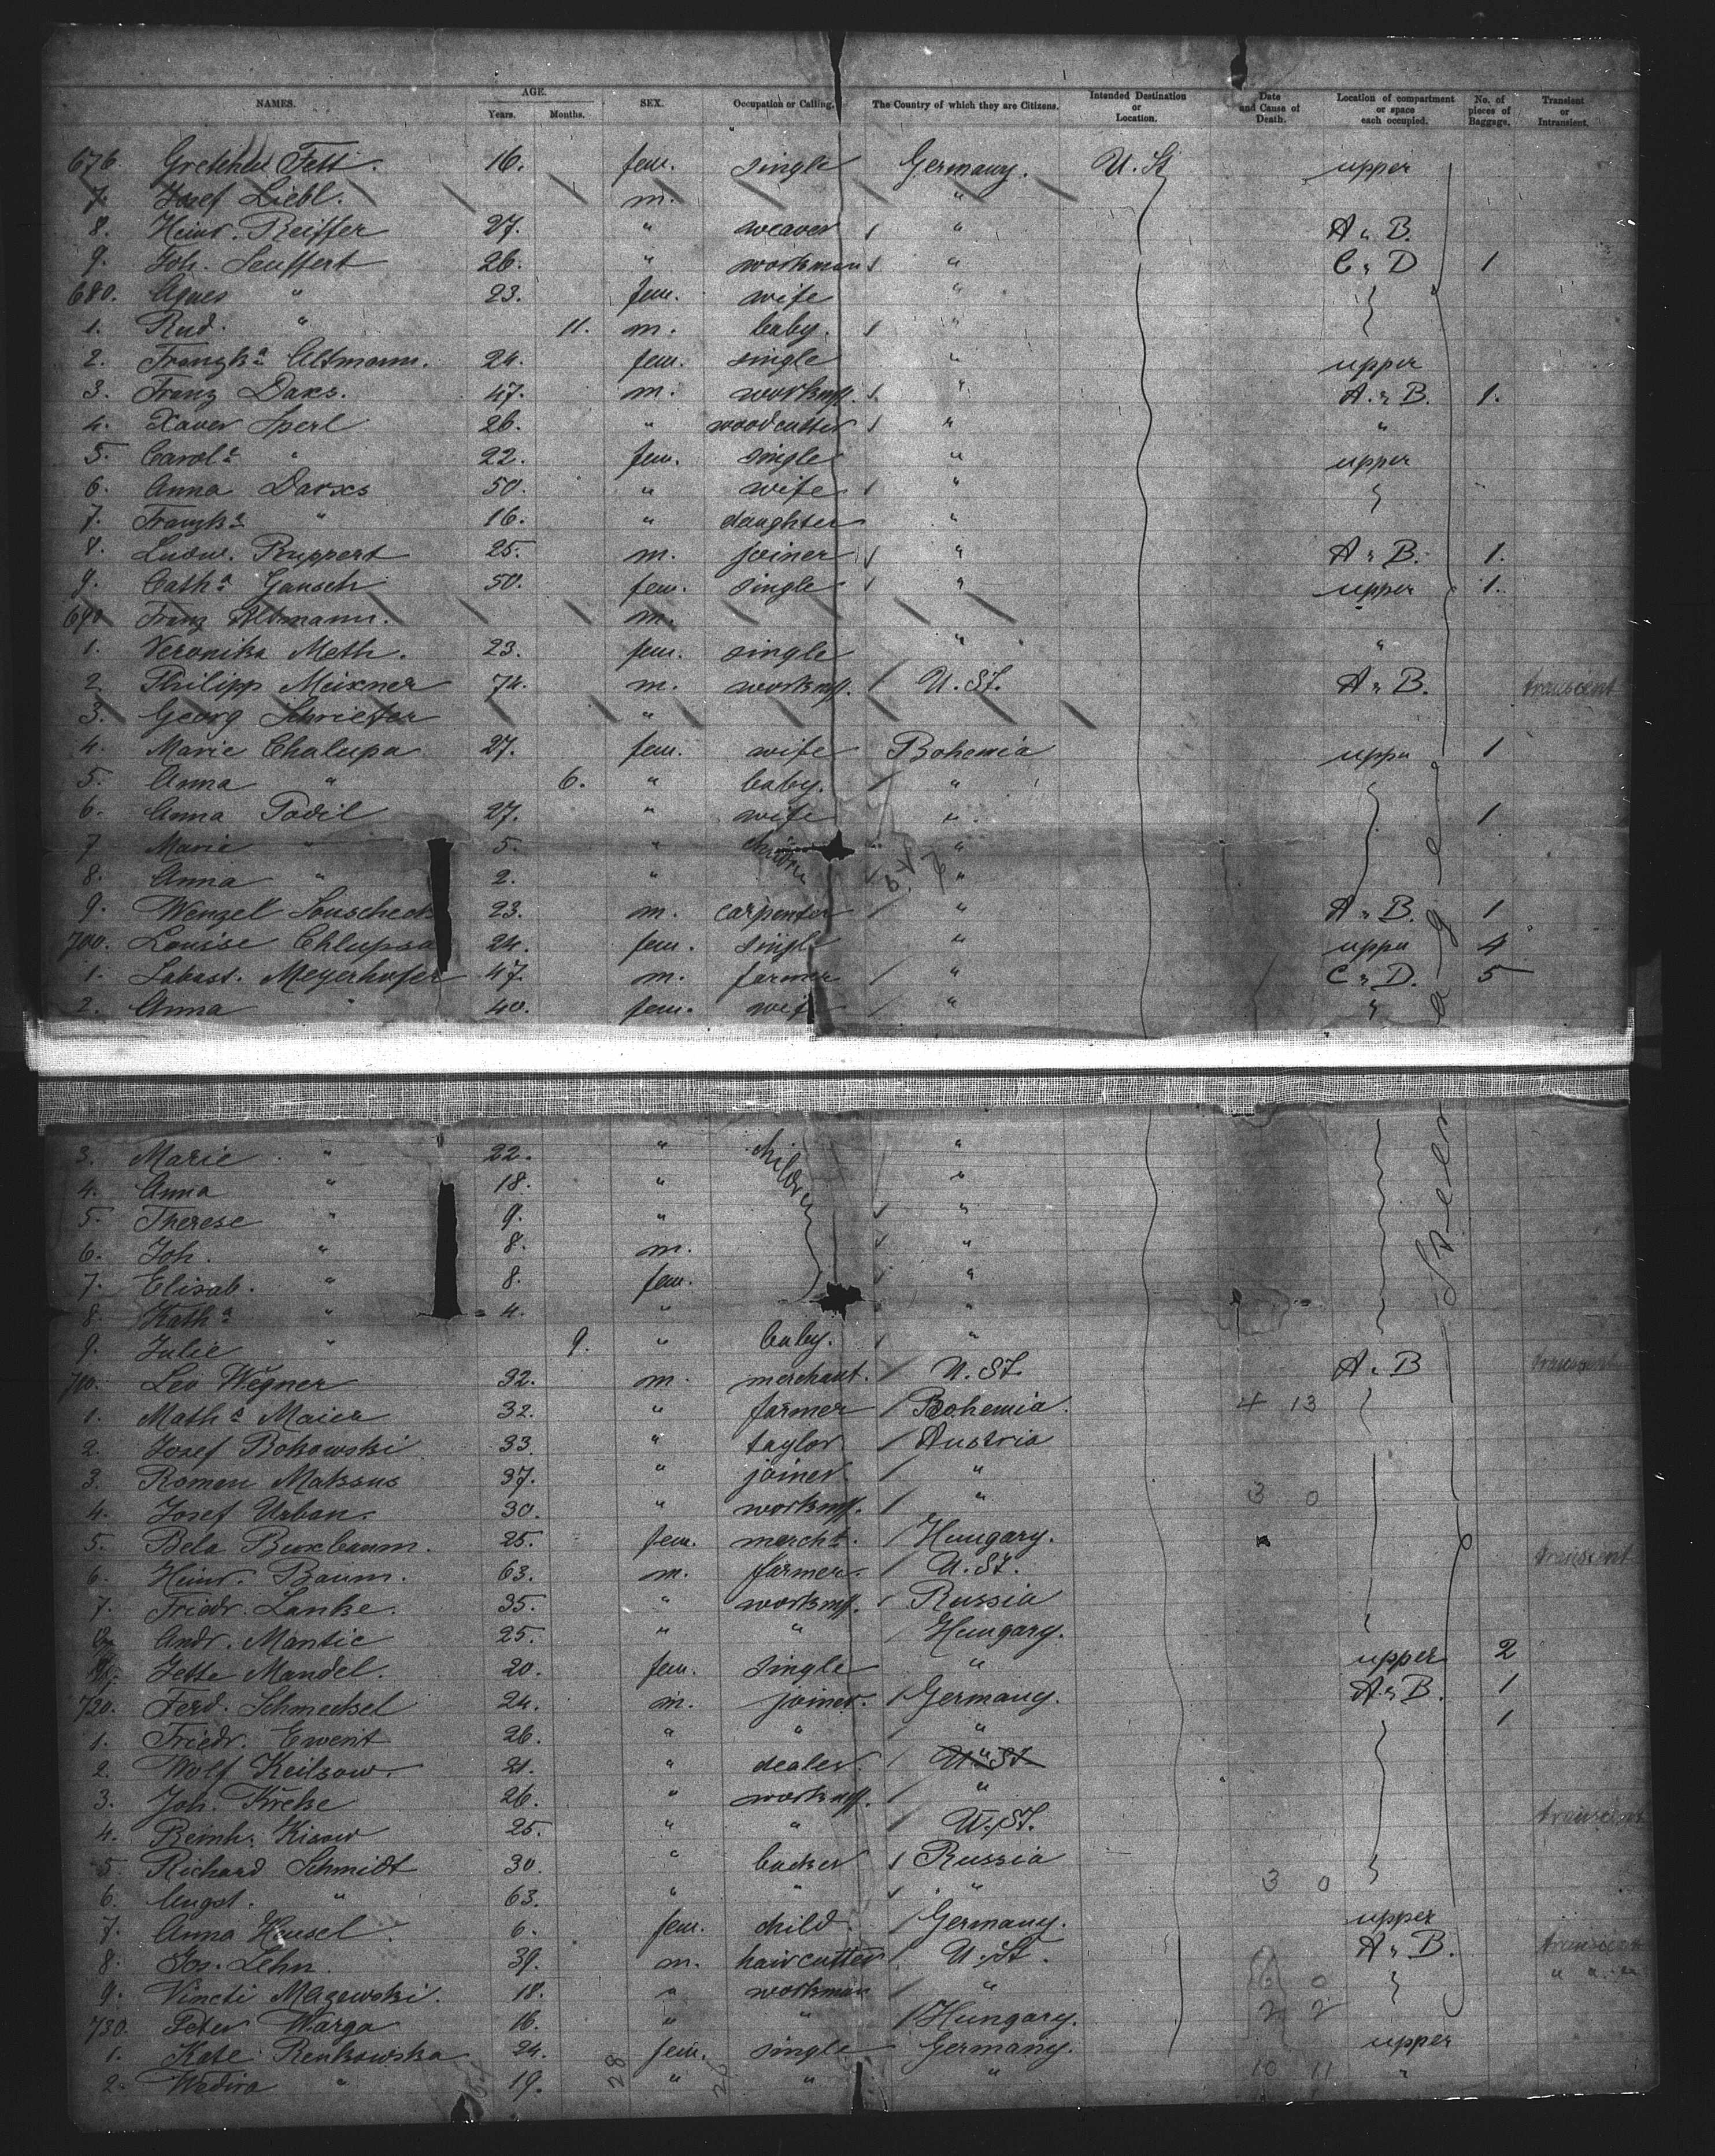 NAMES. AGE. Years. Months. SEX. Occupation or Calling. The Country of which they are Citizens. Intended Destination or Location. Date and Cause of Death. Location of compartment or space each occupied. No. of pieces of Baggage. Transient or Intransient.
676. Gretchen Fett. 16. fem. single Germany. U. St upper
7. Josef Liebl. m. "
8. Heinr. Reiffer 27. " weaver " A " B.
9. Joh. Seuffert 26. " workman " C " D 1
680. Agnes " 23. fem. wife "
1. Rud. " 11. m. baby. "
2. Franzka Altmann. 24. fem. single " upper
3. Franz Daxs. 47. m. workm. " A. " B. 1.
4. Xaver Sperl 26. " woodcutter " "
5. Carola " 22. fem. single " upper
6. Anna Darxs 50. " wife "
7. Franzka " 16. " daughter "
8. Ludw. Ruppert 25. m. joiner " A " B. 1.
9. Catha Gausch 50. fem. single " upper 1.
690 Franz Altmann. m.
1. Veronika Meth. 23. fem. single " "
2. Philipp Meixner 74. m. workm. U. St. A " B. transcient
3. Georg Schriefer "
4. Marie Chalupa 27. fem. wife Bohemia uppe 1
5. Anna " 6. " baby. "
6. Anna Padil 27. " wife " 1
7 Marie " 5. " children "
8. Anna " 2. " "
9. Wenzel Souscheck 23. m. carpenter " A " B. 1
700. Louise Chlupsa 24. fem. single " uppe 4
1. Sabast. Meyerhofer 47. m. farmer " C " D. 5
2. Anna " 40. fem. wife " "
3. Marie " 22. " children "
4. Anna " 18. " "
5. Therese " 9. " "
6. Joh. " 8. m. "
7. Elisab. " 8. fem. "
8. Katha " 4. " "
9. Julie " 9. " baby. "
710. Leo Wegner 32. m. merchant. U. St. A " B transcient
1. Maths Maier 32. " farmer Bohemia. 4 13
2. Josef Bokowski 33. " taylor Austria
3. Romen Maksus 37. " joiner. "
4. Josef Urban. 30. " workm. " 3 0
5. Bela Buxbaum. 25. fem. marcht. Hungary.
6. Heinr. Baum. 63. m. farmer. U. St. transcient
7. Friedr. Lanke. 35. " workm. Russia
Andr. Mantic 25. " " Hungary.
Jette Mandel. 20. fem. single " upper 2
720. Ferd. Schmecksel 24. m. joiner. Germany. A " B. 1
1. Friedr. Ewerit 26. " " " 1
2. Wolf Keilsow. 21. " dealer. U. St
3. Joh. Kreke 26. " workm. "
4. Reinh. Kissow 25. " " U. St. transcient
5. Richard Schmidt 30. " backer Russia
6. Augst. " 63. " " " 3 0
7. Anna Hensel. 6. fem. child Germany. upper
8. Jos. Lehn. 39. m. haircutter U. St. A " B. transcient
9. Vincti Mazewski. 18. " workman " 0 " "
730. Peter Warga 16. " " Hungary. 2 2
1. Kate Renkowska 24. fem. single Germany. upper
2. Wadira " 19. " " " 10 11 "
28
Steerage